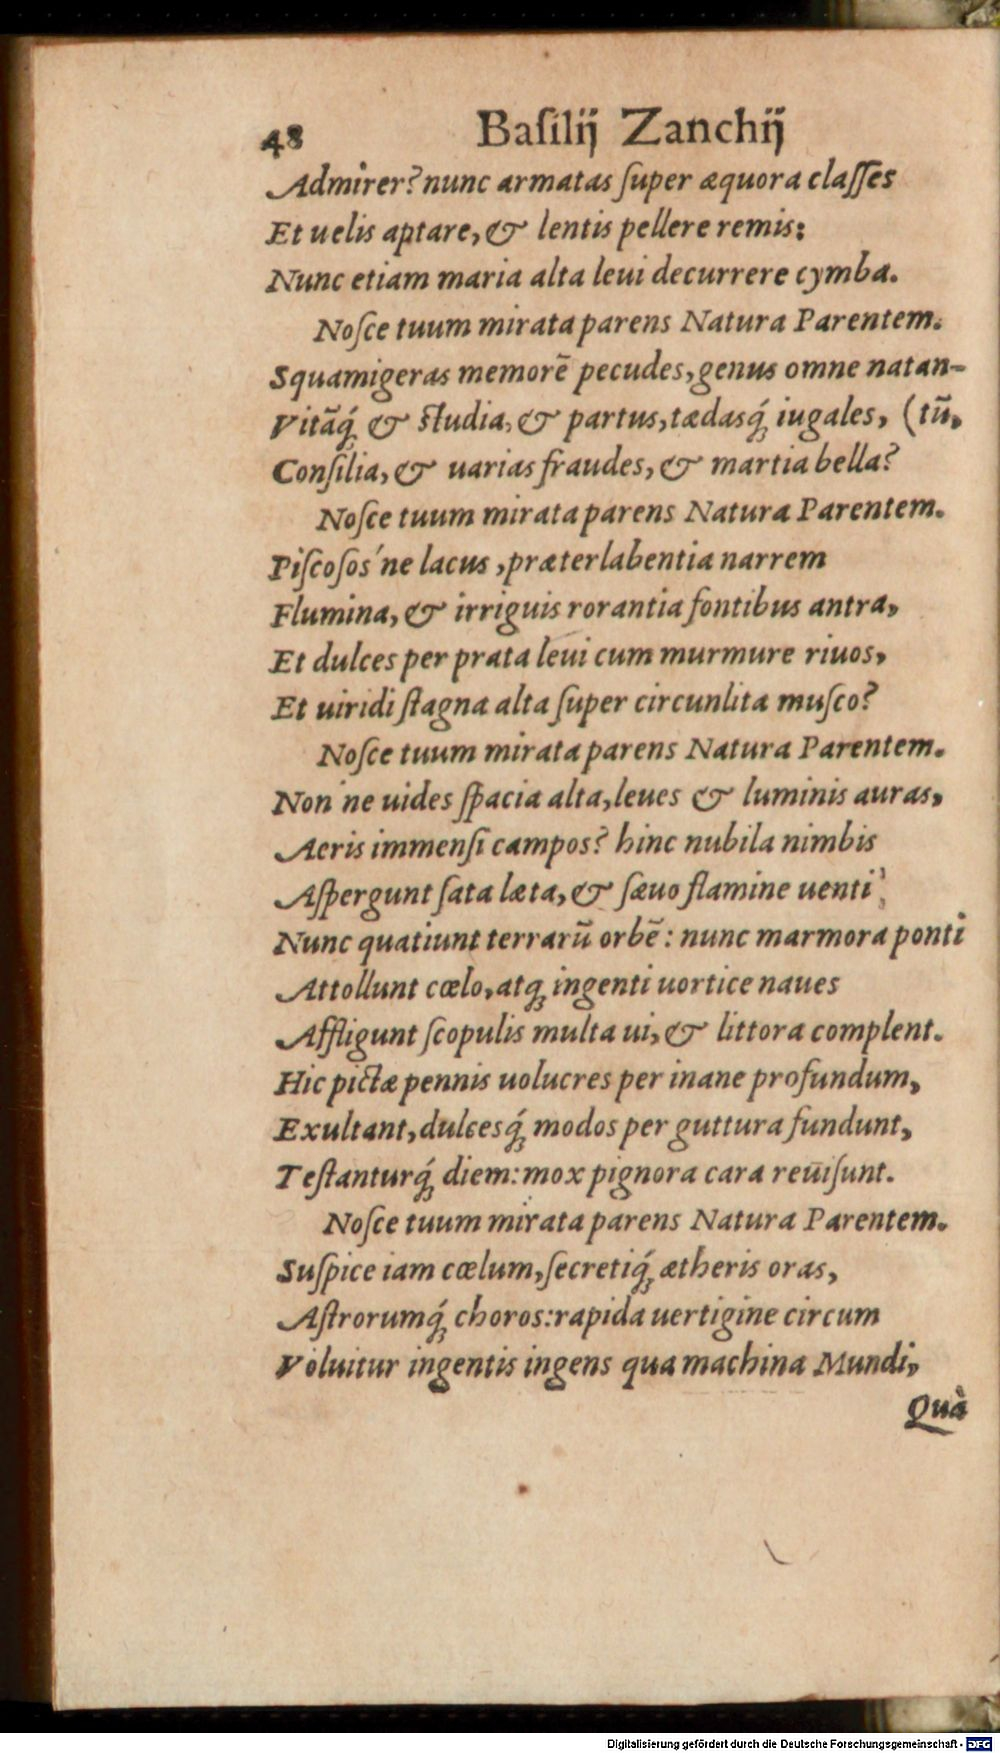 48 Baſilij Zanchij
Admirer? nunc armatas ſuper æquora claſſes
Et uelis aptare, & lentis pellere remis:
Nunc etiam maria alta leui decurrere cymba.
Noſce tuum mirata parens Natura Parentem.
Squamigeras memorē pecudes, genus omne natan-
Vitāq́; & ſtudia, & partus, tædasq́; iugales, (tū,
Conſilia, & uarias fraudes, & martia bella?
Noſce tuum mirata parens Natura Parentem.
Piſcoſos ́ne lacus, præterlabentia narrem
Flumina, & irriguis rorantia fontibus antra,
Et dulces per prata leui cum murmure riuos,
Et uiridi ſtagna alta ſuper circunlita muſco?
Noſce tuum mirata parens Natura Parentem.
Non ́ne uides ſpacia alta, leues & luminis auras,
Aeris immenſi campos? hinc nubila nimbis
Aſpergunt ſata læta, & ſæuo flamine uenti;
Nunc quatiunt terrarū orbē: nunc marmora ponti
Attollunt cœlo, atq; ingenti uortice naues
Affligunt ſcopulis multa ui, & littora complent.
Hic pictæ pennis uolucres per inane profundum,
Exultant, dulcesq́; modos per guttura fundunt,
Teſtanturq́; diem: mox pignora cara reuiſunt.
Noſce tuum mirata parens Natura Parentem.
Suſpice iam cœlum, ſecretiq́; ætheris oras,
Aſtrorumq́; choros: rapida uertigine circum
Voluitur ingentis ingens qua machina Mundi,
Quà
Digitalisierung gefördert durch die Deutsche Forschungsgemeinschaft - DFG